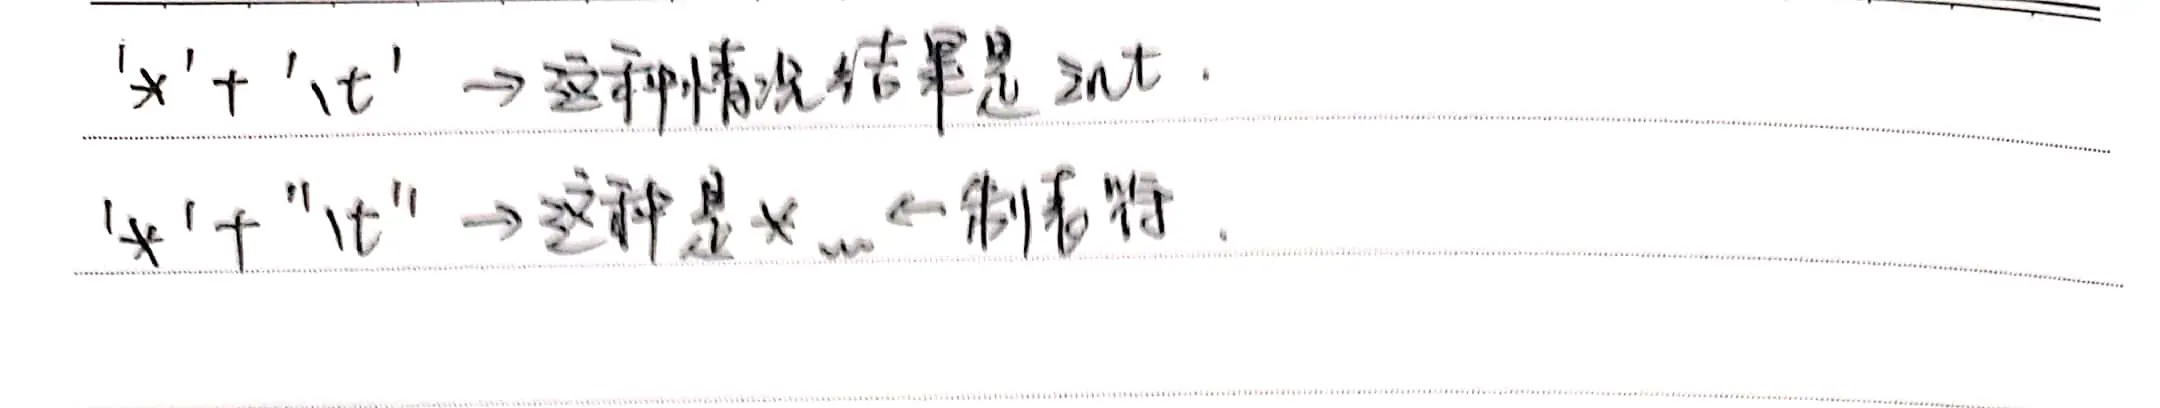 '*'+'\t' →这种情况结果是int.
'*'+"\t" →这种是*⎵←制表符.